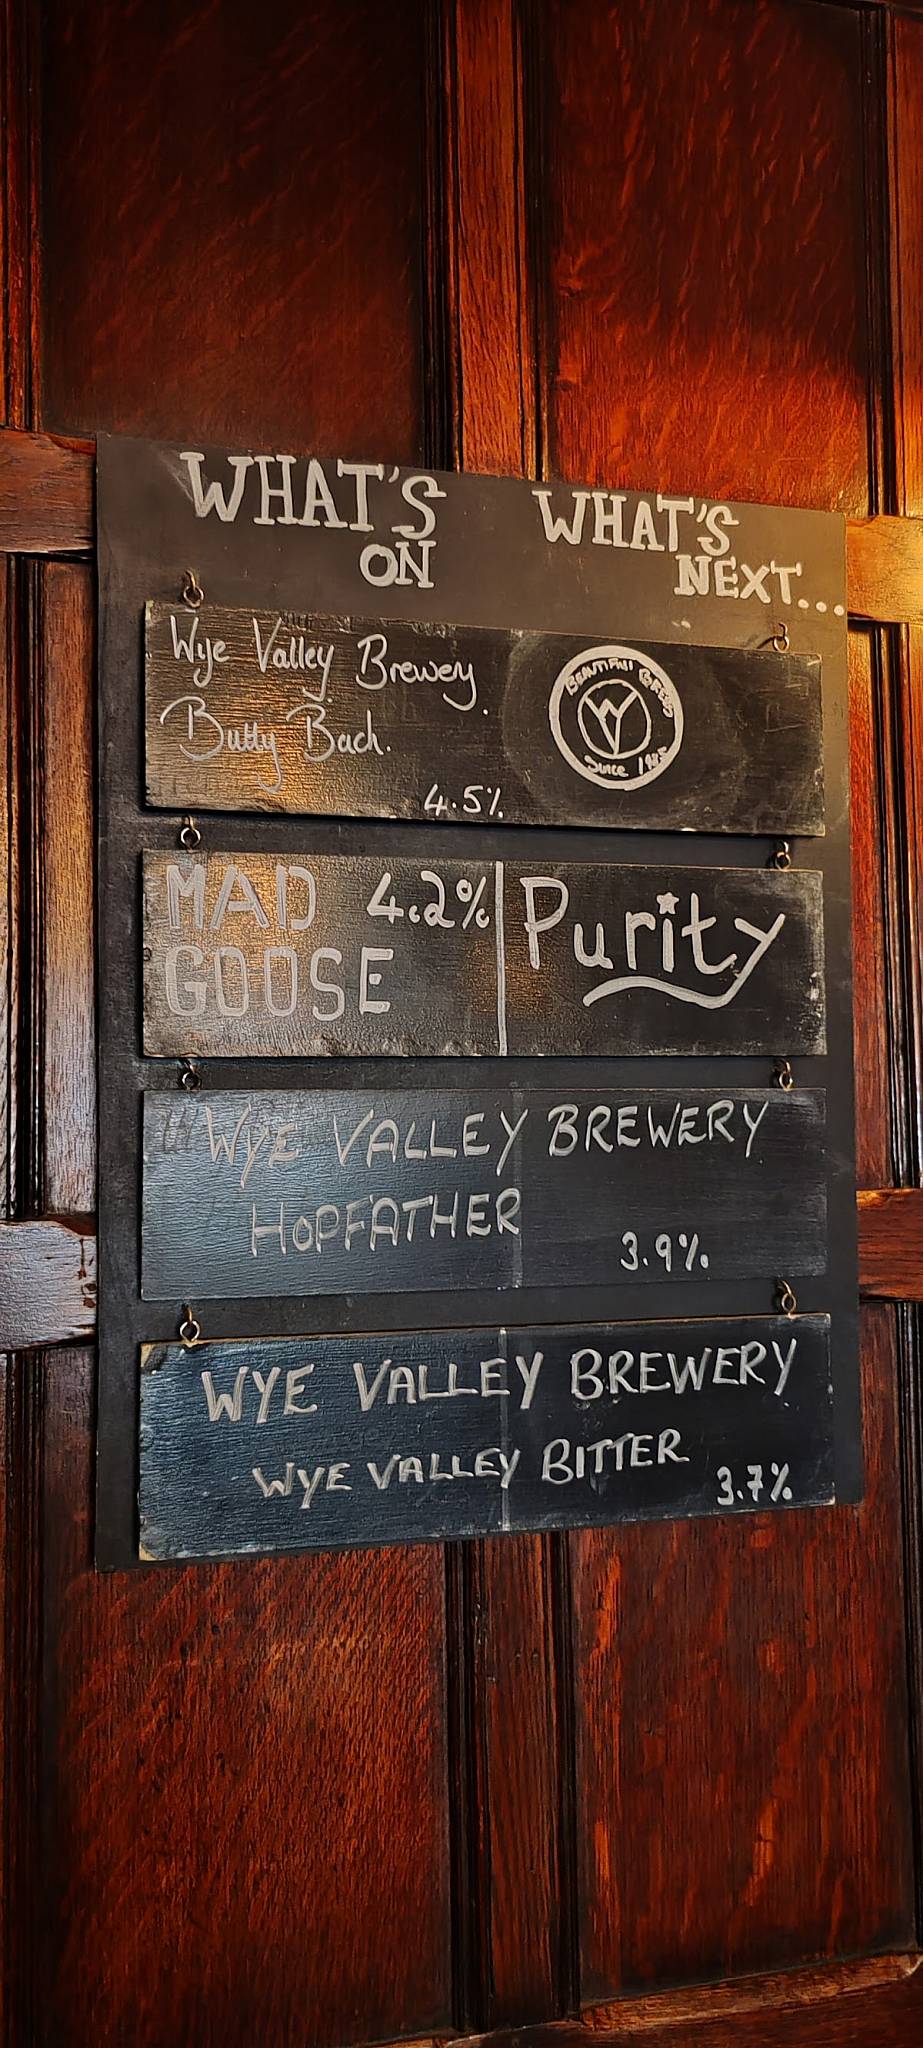 WHAT'S
ON
WHAT'S
NEXT...
Wye Valley Brewey.
Butty Bach.
4.5%
BEAUTIFUL BEERS
Since 1985
MAD 4.2%
GOOSE
Purity
WYE VALLEY BREWERY
HOPFATHER
3.9%
WYE VALLEY BREWERY
WYE VALLEY BITTER
3.7%